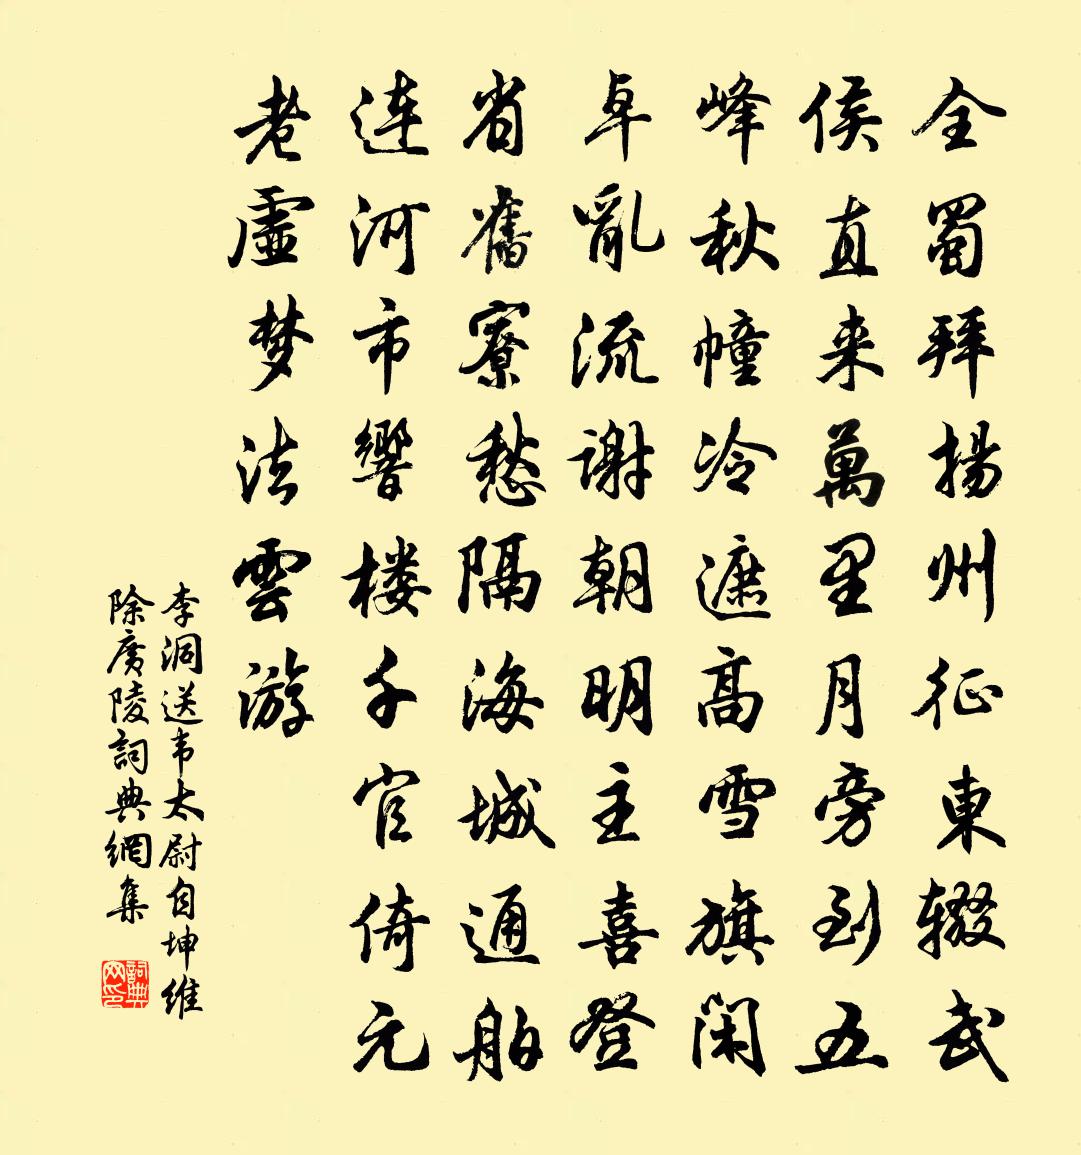 全蜀拜揚州征東辍武
侯直来萬里月旁到五
峰秋幢冷遮高雪旗闲
卓亂流谢朝明主喜登
省舊寮愁隔海城通舶
连河市響楼千官倚元
老虚梦法雲游
李洞送韦太尉自坤维
除廣陵詞典網集
詞典网印